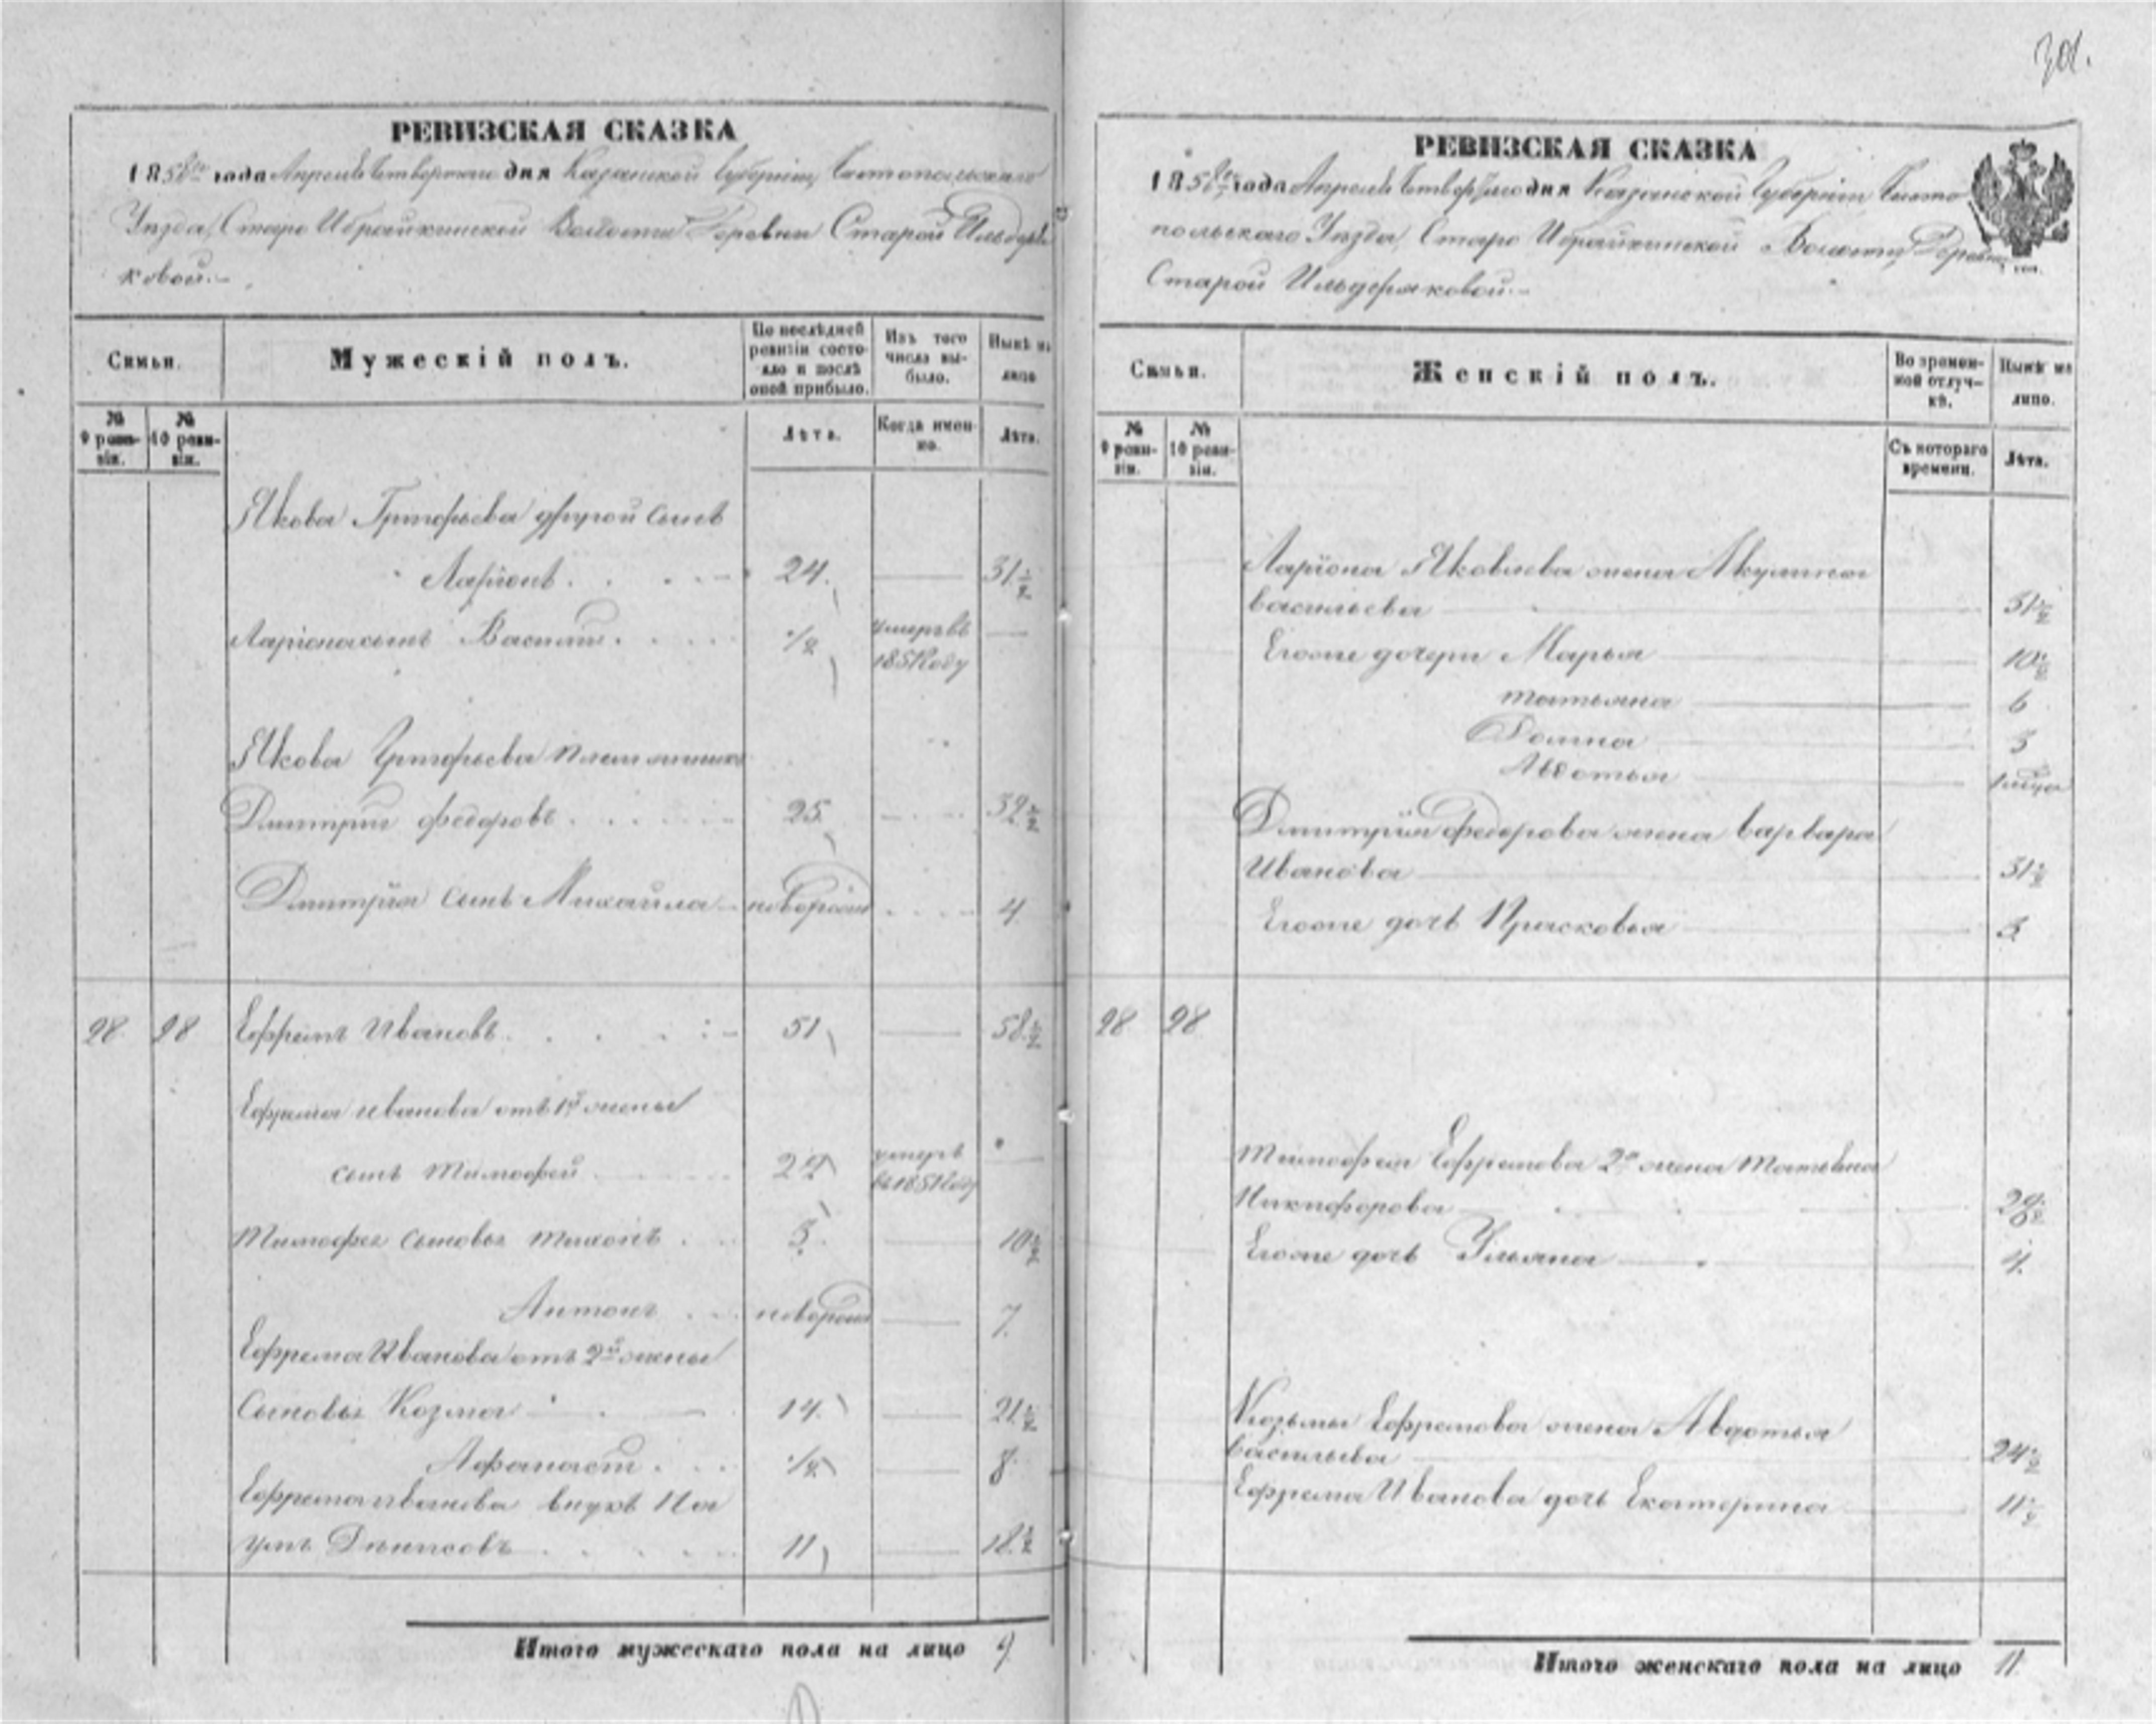 301.
РЕВИЗСКАЯ СКАЗКА
1858го года Апреля Четвертаго дня Казанской Губернiи, Чистопольскаго
Уѣзда, Старо Ибрайкинской Волости Деревни Старой Ильдеря
ковой.-
Семьи.
Мужескiй полъ.
По послѣдней ревизiи состояло и послѣ оной прибыло.
Изъ того числа выбыло.
Нынѣ на лицо
№ 9 ревизiи.
№ 10 ревизiи.
Лѣта.
Когда именно.
Лѣта.
Якова Григорьева другой сынъ
Ларiонъ. 24. 31 1/2
Ларiона сынъ Василiй. 1/2 умеръ въ 1851 году
Якова Григорьева племянникъ
Дмитрiй Федоровъ 25. 32 1/2
Дмитрiя сынъ Михайла новорожд 4.
28. 28 Ефремъ Ивановъ. 51 58 1/2
Ефрема Иванова отъ 1й жены
сынъ Тимофей 22 умеръ въ 1851 году
Тимофея сыновья Тихонъ 3. 10 1/2
Антонъ новорожд 7.
Ефрема Иванова отъ 2й жены
Сыновья Козма 14. 21 1/2
Афанасiй 1/2 8
Ефрема Иванова внукъ На
умъ Денисовъ 11 18 1/2
Итого мужескаго пола на лицо 9.
РЕВИЗСКАЯ СКАЗКА
1858го года Апреля Четвертаго дня Казанской Губернiи Чисто
польскаго Уѣзда, Старо Ибрайкинской Волости, Деревни
Старой Ильдеряковой.-
Семьи.
Женскiй полъ.
Во временной отлучкѣ.
Нынѣ на лицо.
№ 9 ревизiи.
№ 10 ревизiи.
Съ котораго времени.
Лѣта.
Ларiона Яковлева жена Акулина
Васильева 31 1/2
Егоже дочери Марья 10 1/2
Татьяна 6
3
Авдотья
Дмитрiя Федорова жена Варвара
Иванова 31 1/2
Егоже дочь Прасковья 3.
28 28
Тимофея Ефремова 2я жена Татьяна
Никифорова
Егоже дочь Ульяна 4.
Козьмы Ефремова жена Авдотья
Васильева 24 1/2
Ефрема Иванова дочь Екатерина 11 1/2
Итого женскаго пола на лицо 11.